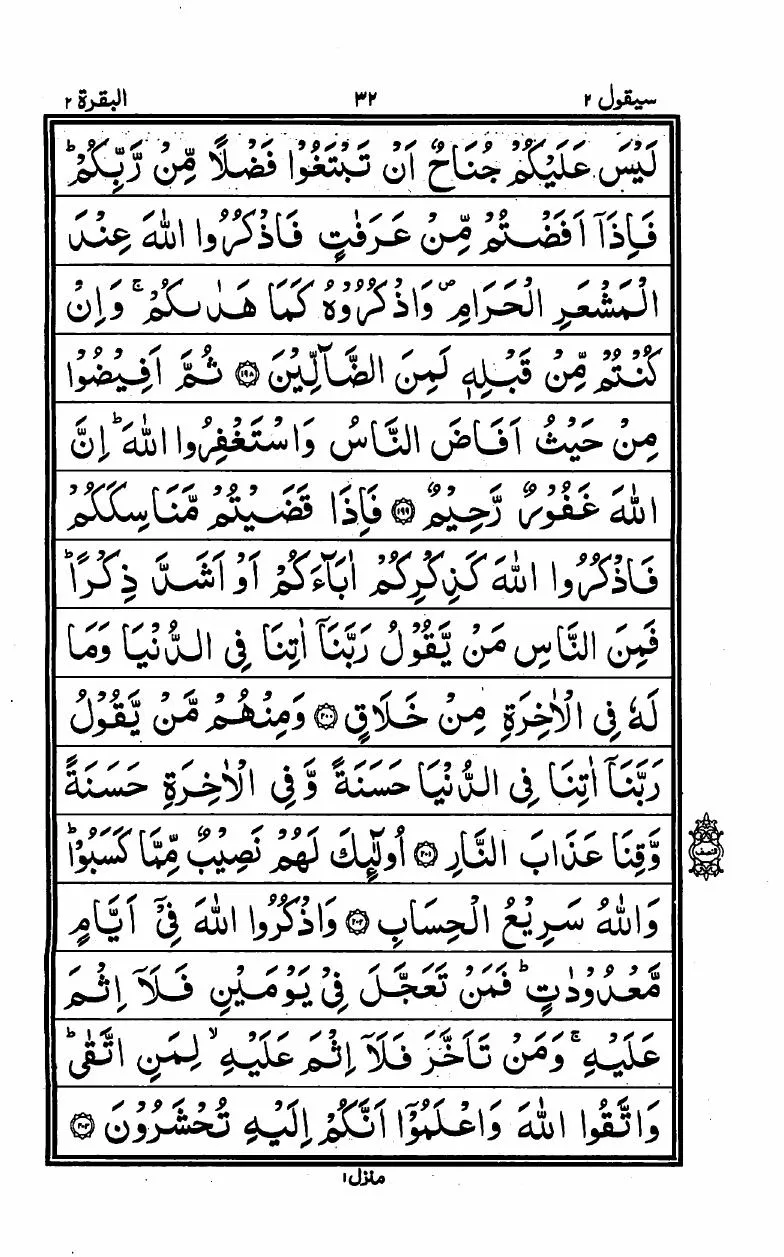 سيقول ٢ ٣٢ البقرة ٢
لَيْسَ عَلَيْكُمْ جُنَاحٌ اَنْ تَبْتَغُوْا فَضْلًا مِّنْ رَّبِّكُمْ ؕ
فَاِذَاۤ اَفَضْتُمْ مِّنْ عَرَفٰتٍ فَاذْكُرُوا اللّٰهَ عِنْدَ
الْمَشْعَرِ الْحَرَامِ ۪ وَاذْكُرُوْهُ كَمَا هَدٰىكُمْ ۚ وَاِنْ
كُنْتُمْ مِّنْ قَبْلِهٖ لَمِنَ الضَّآلِّيْنَ ﴿۱۹۸﴾ ثُمَّ اَفِيْضُوْا
مِنْ حَيْثُ اَفَاضَ النَّاسُ وَاسْتَغْفِرُوا اللّٰهَ ؕ اِنَّ
اللّٰهَ غَفُوْرٌ رَّحِيْمٌ ﴿۱۹۹﴾ فَاِذَا قَضَيْتُمْ مَّنَاسِكَكُمْ
فَاذْكُرُوا اللّٰهَ كَذِكْرِكُمْ اٰبَآءَكُمْ اَوْ اَشَدَّ ذِكْرًا ؕ
فَمِنَ النَّاسِ مَنْ يَّقُوْلُ رَبَّنَاۤ اٰتِنَا فِى الدُّنْيَا وَمَا
لَهٗ فِى الْاٰخِرَةِ مِنْ خَلَاقٍ ﴿۲۰۰﴾ وَمِنْهُمْ مَّنْ يَّقُوْلُ
رَبَّنَاۤ اٰتِنَا فِى الدُّنْيَا حَسَنَةً وَّفِى الْاٰخِرَةِ حَسَنَةً
وَّقِنَا عَذَابَ النَّارِ ﴿۲۰۱﴾ اُولٰٓئِكَ لَهُمْ نَصِيْبٌ مِّمَّا كَسَبُوْا ؕ
النصف
وَاللّٰهُ سَرِيْعُ الْحِسَابِ ﴿۲۰۲﴾ وَاذْكُرُوا اللّٰهَ فِىْۤ اَيَّامٍ
مَّعْدُوْدٰتٍ ؕ فَمَنْ تَعَجَّلَ فِىْ يَوْمَيْنِ فَلَاۤ اِثْمَ
عَلَيْهِ ۚ وَمَنْ تَاَخَّرَ فَلَاۤ اِثْمَ عَلَيْهِ ۙ لِمَنِ اتَّقٰى ؕ
وَاتَّقُوا اللّٰهَ وَاعْلَمُوْۤا اَنَّكُمْ اِلَيْهِ تُحْشَرُوْنَ ﴿۲۰۳﴾
منزل ١